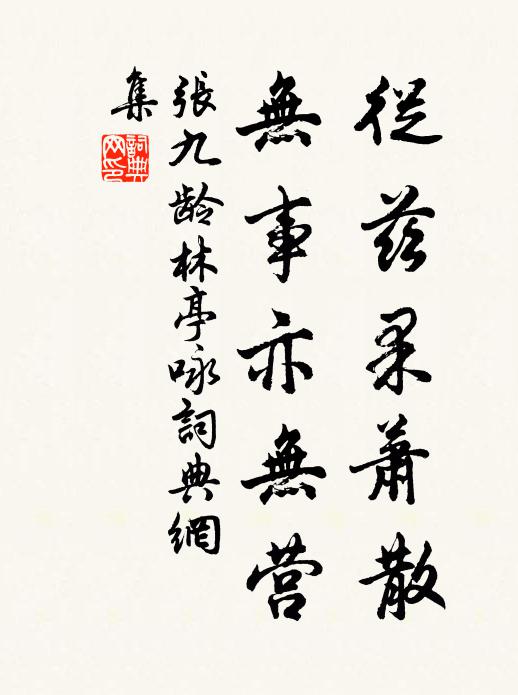 從茲果蕭散
無事亦無営
張九齡林亭咏詞典網
集
詞典網印